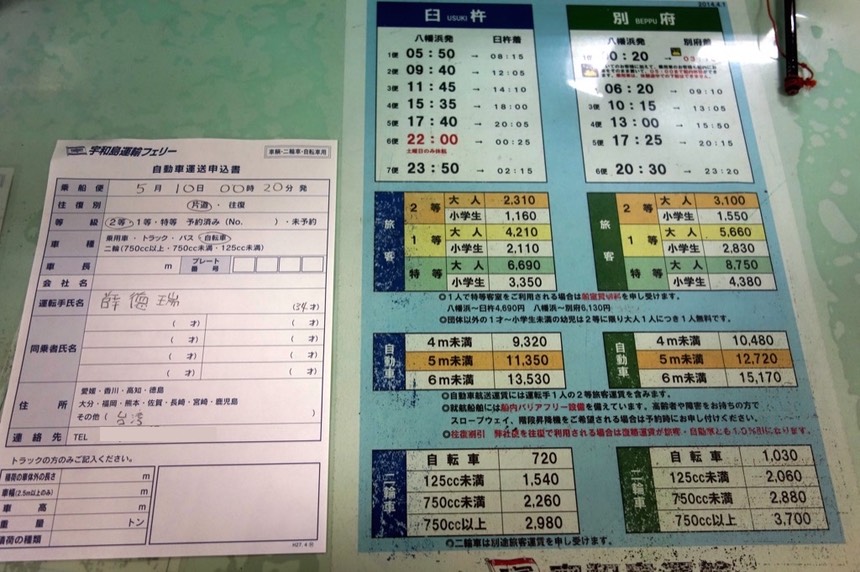 宇和島運輸フェリー
車輌・二輪車・自転車用
自動車運送申込書
乗船便 5月10日 00時20分発
往復別 片道・往復
等級 2等・1等・特等 予約済み(No. )・未予約
車種 乗用車・トラック・バス 自転車
二輪(750cc以上・750cc未満・125cc未満)
車長 m プレート番号
会社名
運転手氏名 薛德瑞 (34才)
( 才) ( 才)
( 才) ( 才)
同乗者氏名
( 才) ( 才)
( 才) ( 才)
住所 愛媛・香川・高知・徳島
大分・福岡・熊本・佐賀・長崎・宮崎・鹿児島
その他( 台湾 )
連絡先 TEL
トラックの方のみご記入ください。
積荷の車体外の長さ m
車幅(2.5m以上のみ) m
車高 m
重量 トン
積荷の種類
H27.4
2014.4.1
臼杵 USUKI
八幡浜発 臼杵着
1便 05:50 → 08:15
2便 09:40 → 12:05
3便 11:45 → 14:10
4便 15:35 → 18:00
5便 17:40 → 20:05
6便 22:00 → 00:25
土曜日のみ休航
7便 23:50 → 02:15
別府 BEPPU
八幡浜発 別府着
00:20
06:20 → 09:10
3便 10:15 → 13:05
4便 13:00 → 15:50
5便 17:25 → 20:15
6便 20:30 → 23:20
旅客
2等 大人 2,310
小学生 1,160
1等 大人 4,210
小学生 2,110
特等 大人 6,690
小学生 3,350
旅客
2等 大人 3,100
小学生 1,550
1等 大人 5,660
小学生 2,830
特等 大人 8,750
小学生 4,380
◎1人で特等客室をご利用される場合は船室貸切料を申し受けます。
八幡浜〜臼杵4,690円 八幡浜〜別府6,130円
◎団体以外の1才〜小学生未満の幼児は2等に限り大人1人につき1人無料です。
自動車
4m未満 9,320
5m未満 11,350
6m未満 13,530
自動車
4m未満 10,480
5m未満 12,720
6m未満 15,170
◎自動車航送運賃には運転手1人の2等旅客運賃を含みます。
◎就航船舶には船内バリアフリー設備を備えています。高齢者や障害をお持ちの方で
スロープウェイ、階段昇降機をご希望される場合は予約時にお申し付けください。
◎往復割引 弊社便を往復で利用される場合は復路運賃が旅客・自動車とも10%引になります。
二輪車
自転車 720
125cc未満 1,540
750cc未満 2,260
750cc以上 2,980
二輪車
自転車 1,030
125cc未満 2,060
750cc未満 2,880
750cc以上 3,700
◎二輪車は別途旅客運賃を申し受けます。